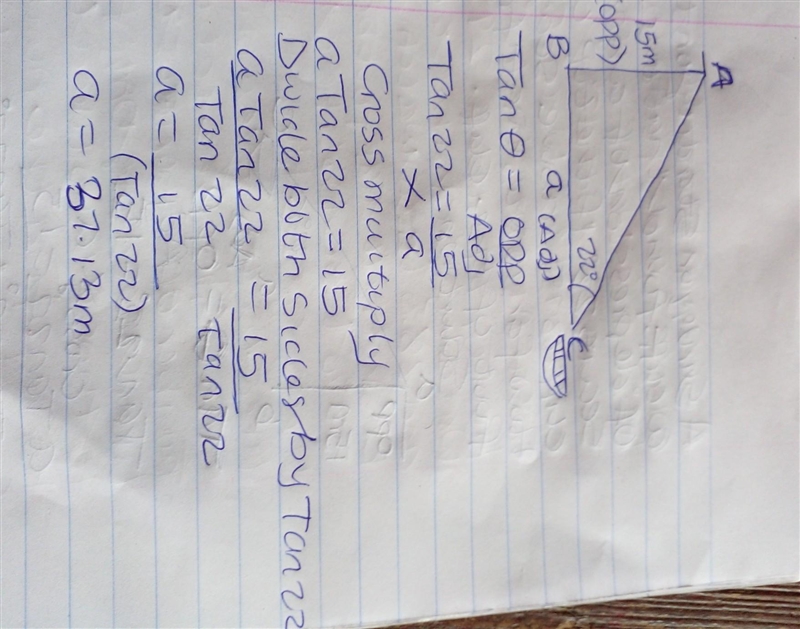 A
15m
(opp)
B
a (Adj)
22°
C
Tan θ = opp
Adj
Tan 22 = 15
a
Cross multiply
a Tan 22 = 15
Divide both Sides by Tan 22
a Tan 22 = 15
Tan 22 Tan 22
a = 15
(Tan 22)
a = 37.13m